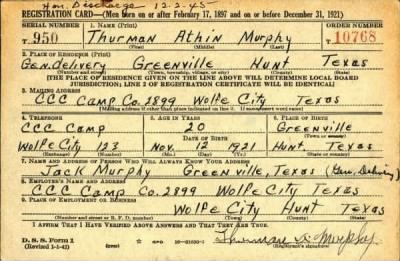 Hon. Discharge 12-2-45
REGISTRATION CARD—(Men born on or after February 17, 1897 and on or before December 31, 1921)
SERIAL NUMBER 1. NAME (Print) ORDER NUMBER
T 950 Thurman Athin Murphy T 10768
(First) (Middle) (Last)
2. PLACE OF RESIDENCE (Print)
Gen. delivery Greenville Hunt Texas
(Number and street) (Town, township, village, or city) (County) (State)
[THE PLACE OF RESIDENCE GIVEN ON THE LINE ABOVE WILL DETERMINE LOCAL BOARD
JURISDICTION; LINE 2 OF REGISTRATION CERTIFICATE WILL BE IDENTICAL]
3. MAILING ADDRESS
CCC Camp Co. 2899 Wolfe City Texas
[Mailing address if other than place indicated on line 2. If same insert word same]
4. TELEPHONE 5. AGE IN YEARS 6. PLACE OF BIRTH
CCC Camp 20 Greenville
DATE OF BIRTH (Town or county)
Wolfe City 123 Nov. 12 1921 Hunt, Texas
(Exchange) (Number) (Mo.) (Day) (Yr.) (State or country)
7. NAME AND ADDRESS OF PERSON WHO WILL ALWAYS KNOW YOUR ADDRESS
Jack Murphy Greenville, Texas (Gen. Delivery)
8. EMPLOYER'S NAME AND ADDRESS
CCC Camp Co. 2899 Wolfe City Texas
9. PLACE OF EMPLOYMENT OR BUSINESS
Wolfe City Hunt Texas
(Number and street or R. F. D. number) (Town) (County) (State)
I AFFIRM THAT I HAVE VERIFIED ABOVE ANSWERS AND THAT THEY ARE TRUE.
D. S. S. Form 1
(Revised 1-1-42) Thurman A. Murphy
(Registrant's signature)